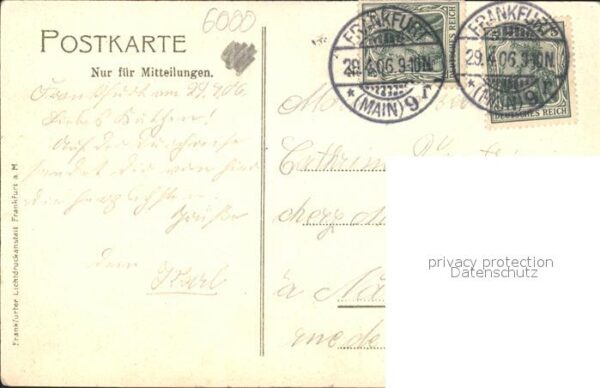 6000
POSTKARTE
Nur für Mitteilungen.
Frankfurt am 29.4.06
Liebes Käthchen!
Auf der Durchreise
sendet dir von hier
die herzlichsten
Grüße
dein Karl
FRANKFURT
29.4.06. 9-10N
* (MAIN) 9 r
DEUTSCHES REICH
FRANKFURT
29.4.06. 9-10N
* (MAIN) 9 r
DEUTSCHES REICH
cherz
à
rue de
privacy protection
Datenschutz
Frankfurter Lichtdruckanstalt Frankfurt a. M